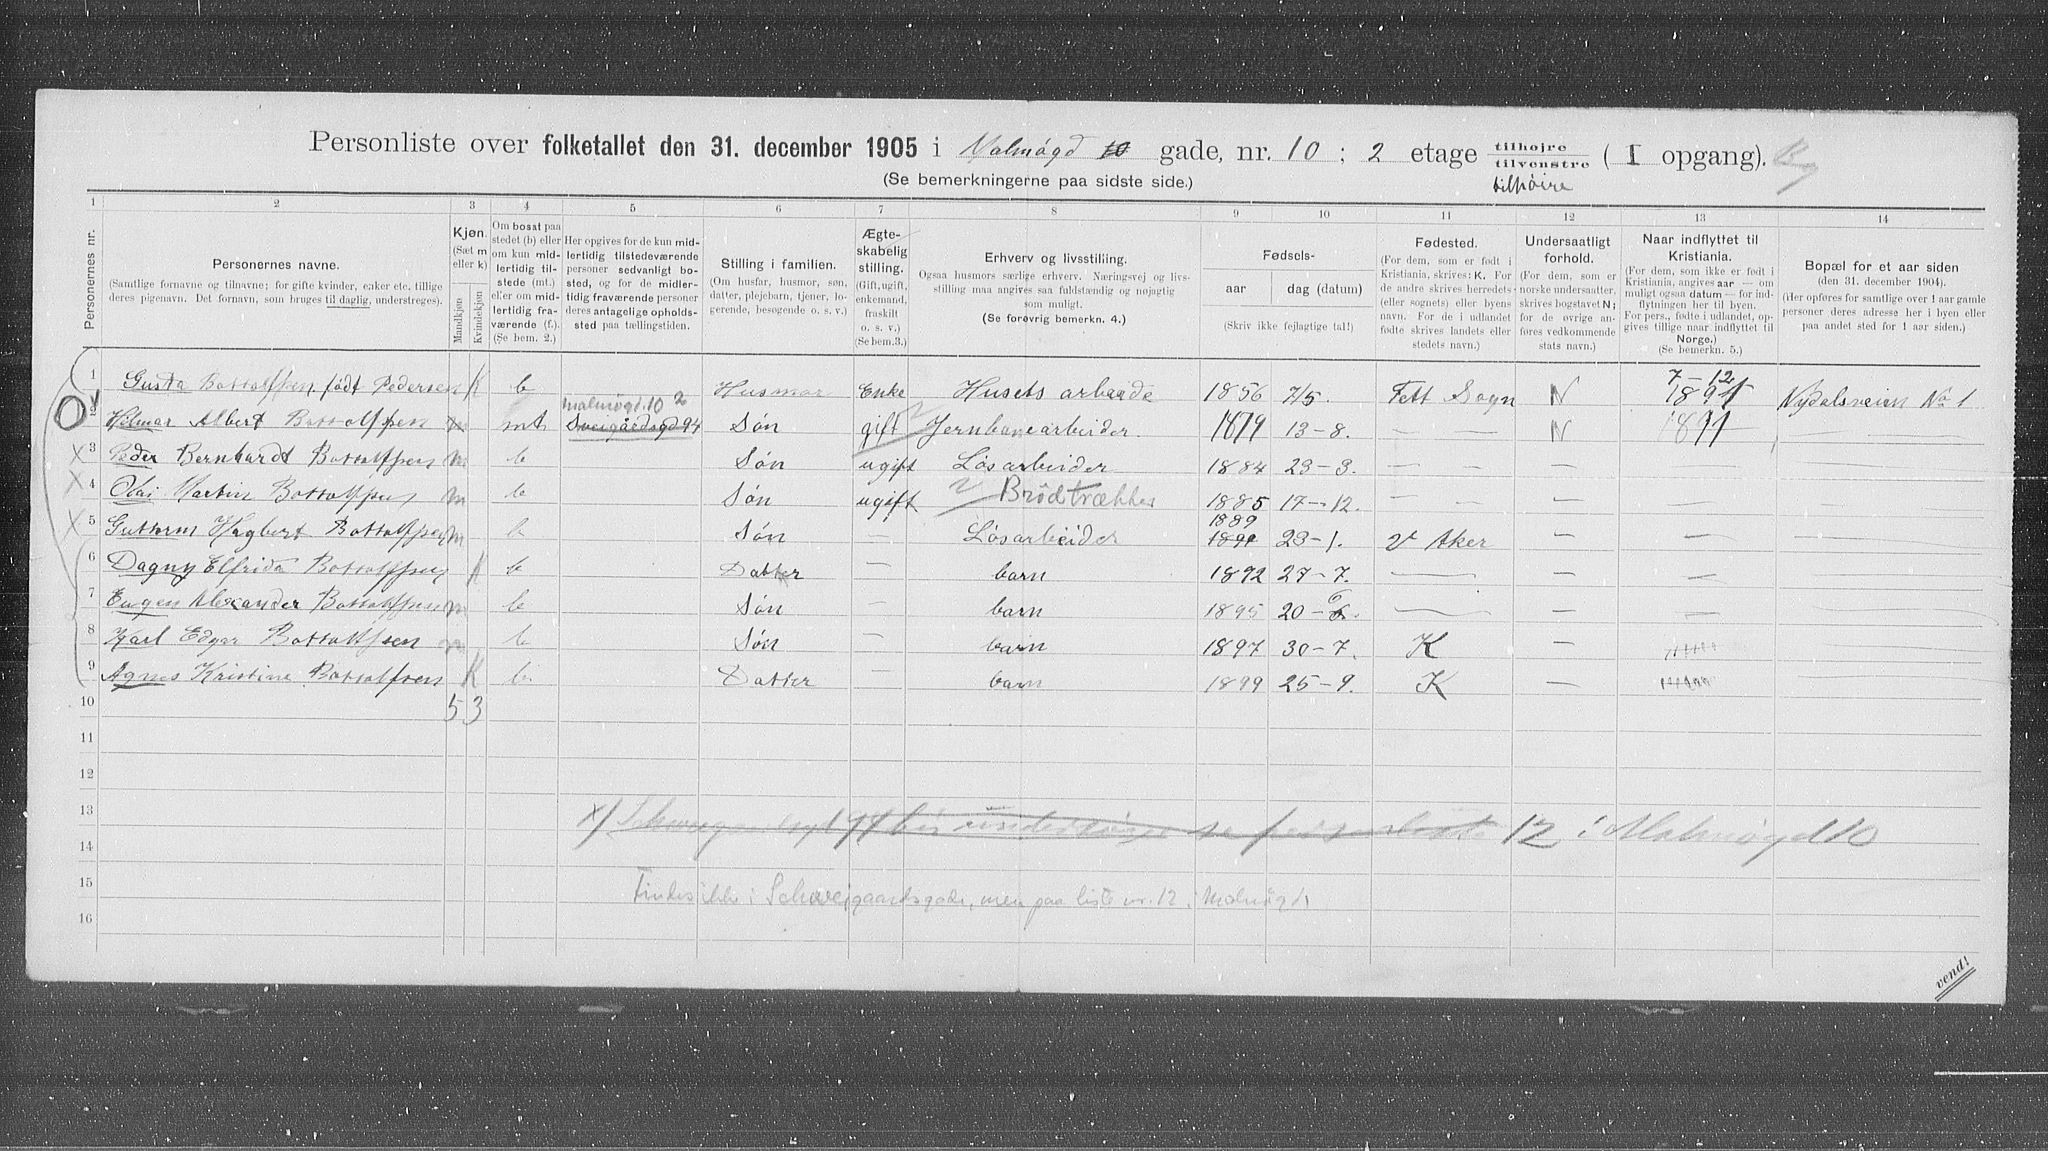 Personliste over folketallet den 31. december 1905 i Malmøgd 10 gade, nr. 10 ; 2 etage tilhøjre tilvenstre ( I opgang).
(Se bemerkningerne paa sidste side.) tilhøire
1 2 3 4 5 6 7 8 9 10 11 12 13 14
Personernes nr.
Personernes navne.
(Samtlige fornavne og tilnavne; for gifte kvinder, enker etc. tillige deres pigenavn. Det fornavn, som bruges til daglig, understreges).
Kjøn.
(Sæt m eller k)
Mandkjøn
Kvindekjøn
Om bosat paa stedet (b) eller om kun midlertidig tilstede (mt.) eller om midlertidig fraværende (f.). (Se bem. 2.)
Her opgives for de kun midlertidig tilstedeværende personer sedvanligt bosted, og for de midlertidig fraværende personer deres antagelige opholdssted paa tællingstiden.
Stilling i familien.
(Om husfar, husmor, søn, datter, plejebarn, tjener, logerende, besøgende o. s. v.)
Ægteskabelig stilling.
(Gift, ugift, enkemand, fraskilt o. s. v.) (Se bem. 3.)
Erhverv og livsstilling.
Ogsaa husmors særlige erhverv. Næringsvej og livsstilling maa angives saa fuldstændig og nøjagtig som muligt.
(Se forøvrig bemerkn. 4.)
Fødsels-
aar
dag (datum)
(Skriv ikke fejlagtige tal!)
Fødested.
(For dem, som er født i Kristiania, skrives: K. For de andre skrives herredets (eller sognets) eller byens navn. For de i udlandet fødte skrives landets eller stedets navn.)
Undersaatligt forhold.
(For dem, som er norske undersaatter, skrives bogstavet N; for de øvrige anføres vedkommende stats navn.)
Naar indflyttet til Kristiania.
(For dem, som ikke er født i Kristiania, angives aar — om muligt ogsaa datum — for indflytningen her til byen. For pers., fødte i udlandet, opgives tillige naar indflyttet til Norge.)
(Se bemerkn. 5.)
Bopæl for et aar siden
(den 31. december 1904).
(Her opføres for samtlige over 1 aar gamle personer deres adresse her i byen eller paa andet sted for 1 aar siden.)
1 Gusta Bottolfsen, født Pedersen K b Husmor Enke Husets arbeide 1856 7/5. Fett Sogn N 7-12 1891 Nydalsveien No 1
2 Hilmar Albert Bottolfsen m mt malmøgd. 10 2 Sveigårdsgd 94 Søn gift Jernbanearbeider. 1879 13-8. — N 1891 —
3 Peder Bernhardt Bottolfsen m b Søn ugift Løsarbeider 1884 23-3. — — —
4 Olai Martin Bottolfsen m b Søn ugift Brødtrækker 1885 17-12. — — —
5 Guttorm Hagbert Bottolfsen m b Søn — Løsarbeider 1889 1891 23-1. Aker — —
6 Dagny Elfrida Bottolfsen K b Datter — barn 1892 27-7. — — —
7 Eugen Alexander Bottolfsen m b Søn — barn 1895 20- — — —
8 Karl Edgar Bottolfsen m b Søn — barn 1897 30-7. K —
9 Agnes Kristine Bottolfsen K b. Datter — barn 1899 25-9. K —
10 5 3
11
12
13 x) Schweigaardsgd 94 se personliste 12 i Malmøgd 10
14
15 Findes ikke i Schweigaardsgade, men paa liste nr. 12 i Malmøgd.
16
vend!